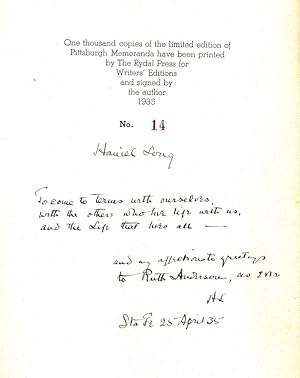 One thousand copies of the limited edition of
Pittsburgh Memoranda have been printed
by The Rydal Press for
Writers' Editions
and signed by
the author
1935
No. 14
Haniel Long
To come to terms with ourselves,
with the others who live life with us,
and the Life that lives all —
and my affectionate greetings
to Ruth Anderson, as ever
HL
Sta Fe 25 April 35